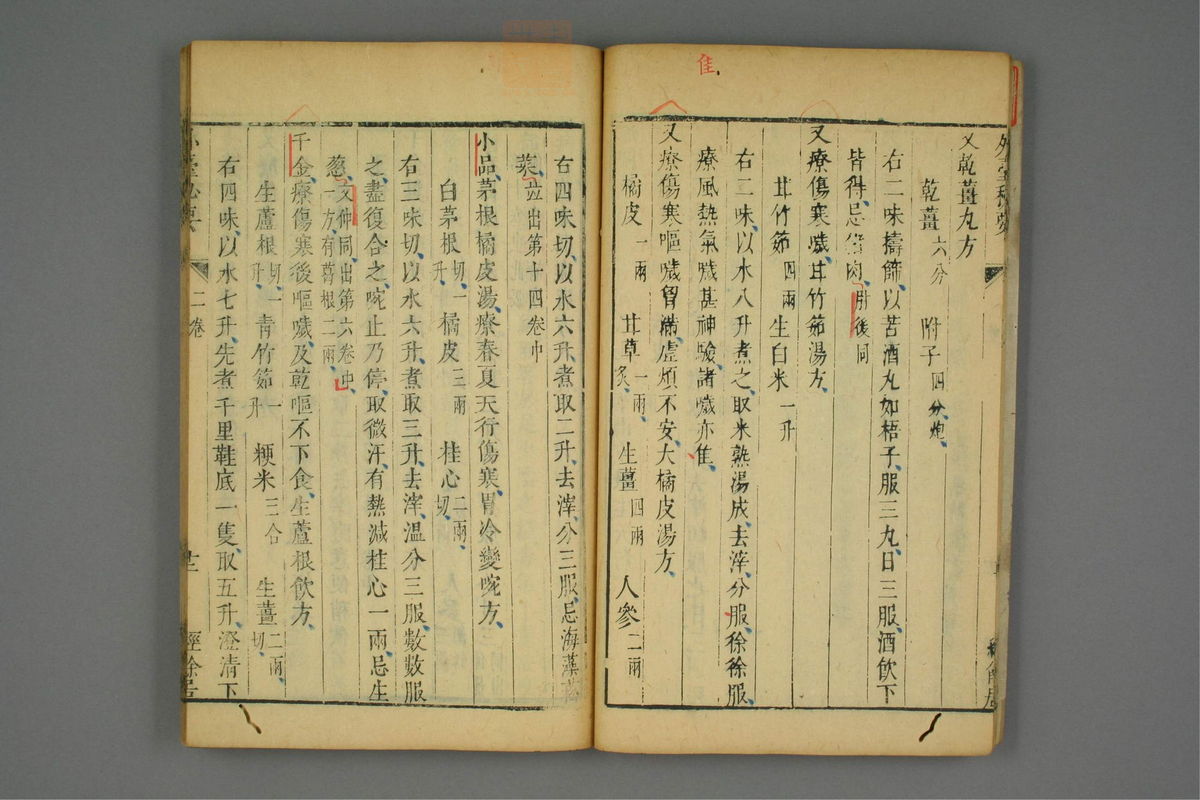 外臺秘要
又乾薑丸方
乾薑六分 附子四分炮
右二味擣篩以苦酒丸如梧子服三丸日三服酒飲下
皆得忌猪肉肘後同
又療傷寒噦甘竹茹湯方
甘竹茹四兩生白米一升
右二味以水八升煮之取米熟湯成去滓分服徐徐服
療風熱氣噦甚神驗諸噦亦佳
隹
又療傷寒嘔噦胷滿虛煩不安大橘皮湯方
橘皮一兩 甘草一兩炙 生薑四兩 人參二兩
右四味切以水六升煮取二升去滓分三服忌海藻菘
菜並出第十四卷中
小品茅根橘皮湯療春夏天行傷寒胃冷變啘方
白茅根切一升 橘皮三兩 桂心二兩切
右三味切以水六升煮取三升去滓溫分三服數數服
之盡復合之啘止乃停取微汗有熱減桂心一兩忌生
葱文仲同出第六卷中一方有葛根二兩
千金療傷寒後嘔噦及乾嘔不下食生蘆根飲方
生蘆根切一升 青竹茹一升 粳米三合 生薑二兩切
右四味以水七升先煮千里鞋底一隻取五升澄清下
外臺秘要 二卷 十二 經餘居